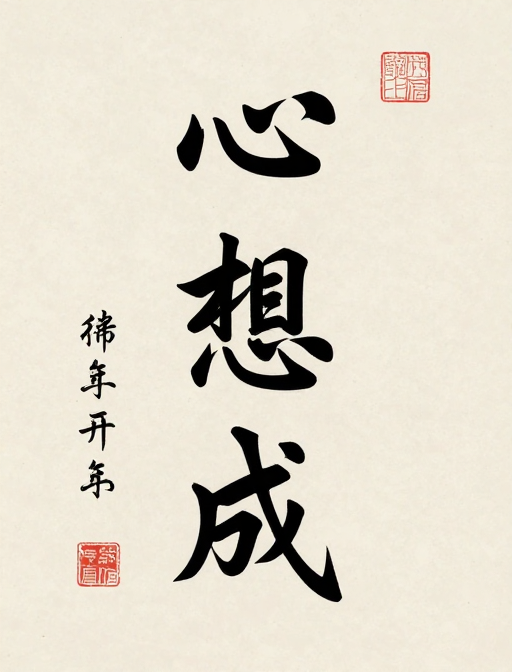 心想成
年开年